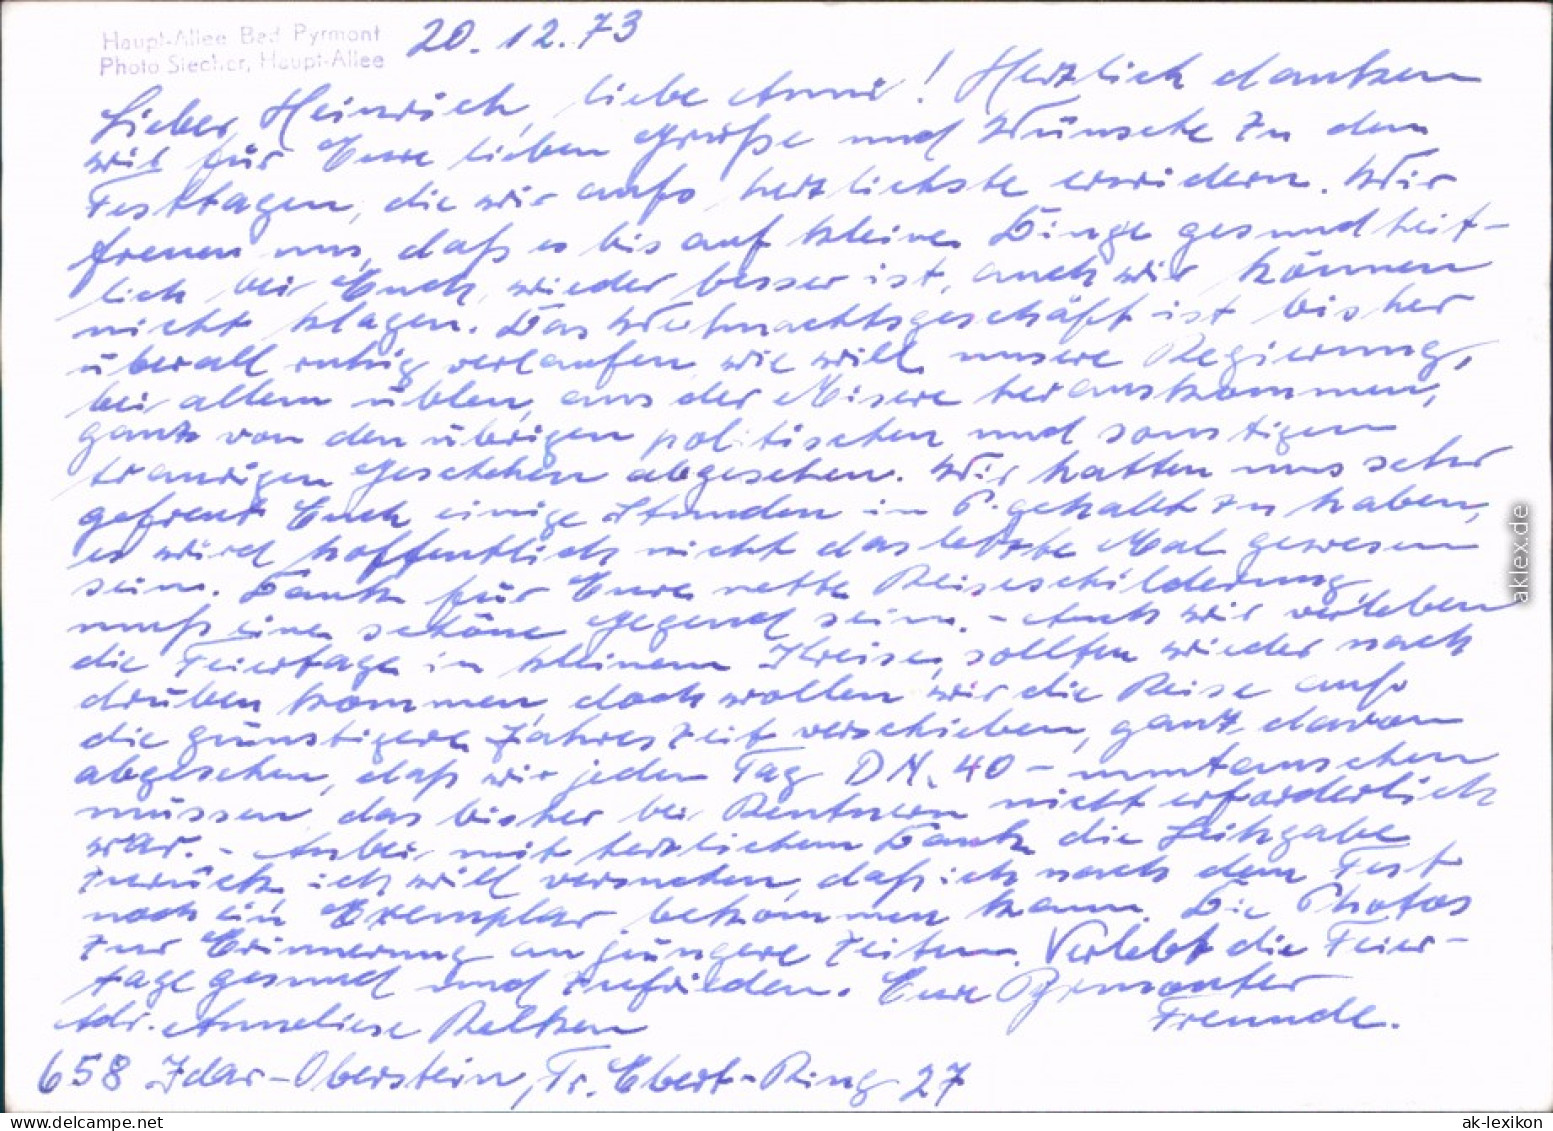 Haupt-Allee Bad Pyrmont
Photo Siecker, Haupt-Allee
20.12.73
Lieber Heinrich, liebe Anni! Herzlich danken
wir für Eure lieben Grüße und Wünsche zu den
Festtagen, die wir aufs herzlichste erwidern. Wir
freuen uns, daß es bis auf kleine Dinge gesundheit-
lich bei Euch wieder besser ist, auch wir können
nicht klagen. Das Weihnachtsgeschäft ist bisher
überall ruhig verlaufen, wie will unsere Regierung,
bei allem üblen, aus der Misere herauskommen,
ganz von den übrigen politischen und sonstigen
traurigen Geschehen abgesehen. Wir hatten uns sehr
gefreut Euch einige Stunden in P. gehabt zu haben,
es wird hoffentlich nicht das letzte Mal gewesen
sein. Dank für Eure nette Reiseschilderung
muß eine schöne Gegend sein. - Auch wir verleben
die Feiertage in kleinem Kreise, sollten wieder nach
drüben kommen, doch wollen wir die Reise aufs
die günstigere Jahreszeit verschieben, ganz davon
abgesehen, daß wir jeden Tag DM. 40 - umtauschen
müssen, das bisher bei Rentnern nicht erforderlich
war. - Anbei mit herzlichem Dank die Leihgabe
zurück, ich will versuchen, daß ich nach dem Fest
noch ein Exemplar bekommen kann. Die Photos
zur Erinnerung an jüngere Zeiten. Verlebt die Feier-
tage gesund und zufrieden. Eure Pyrmonter
Freunde.
Adr. Anneliese
658 Idar-Oberstein, Fr. Ebert-Ring 27
aklex.de
ak-lexikon